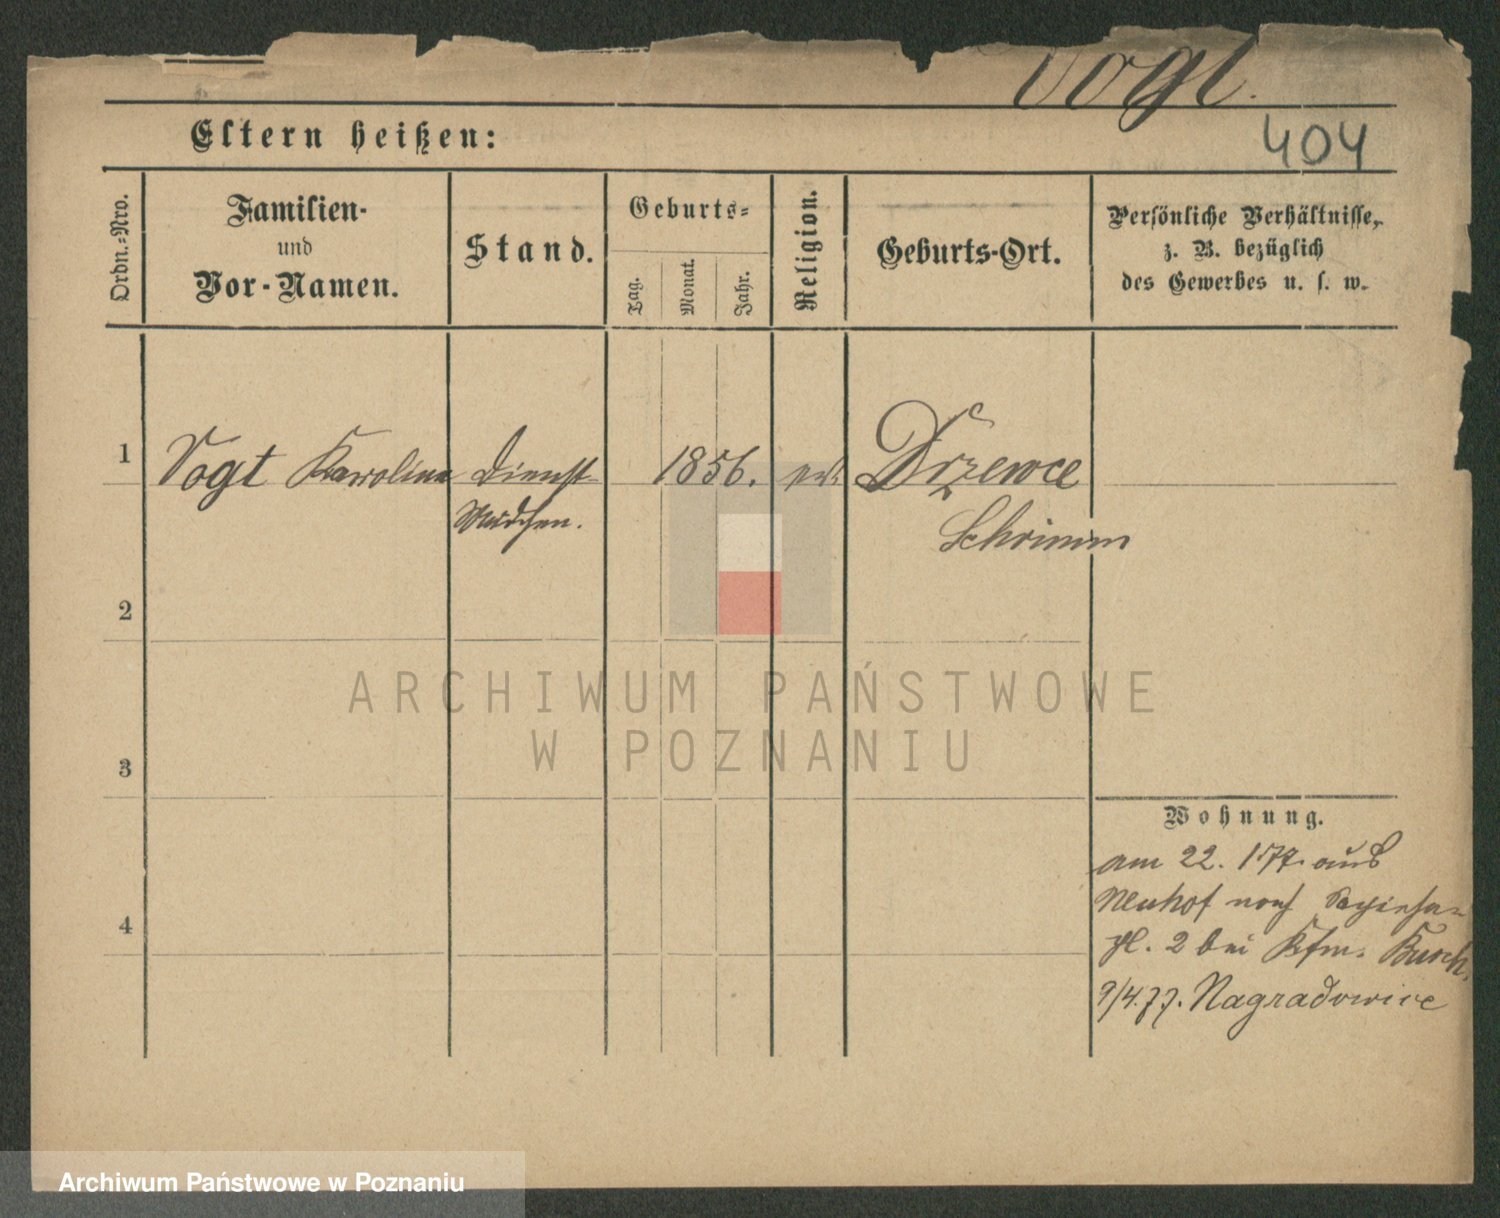 Vogt.
404
Eltern heißen:
Ordn.-Nro.
Familien-
und
Vor-Namen.
Stand.
Geburts-
Tag.
Monat.
Jahr.
Religion.
Geburts-Ort.
Persönliche Verhältnisse,
z. B. bezüglich
des Gewerbes u. s. w.
1 Vogt Karoline Dienst- 1856. ev. Drzewce
Mädchen. Schrimm
2
3
4
ARCHIWUM PAŃSTWOWE
W POZNANIU
Wohnung.
am 22. 1 77. aus
Neuhof nach
pl. 2 bei Kfm. Busch.
9/4.77. Nagradowice
Archiwum Państwowe w Poznaniu